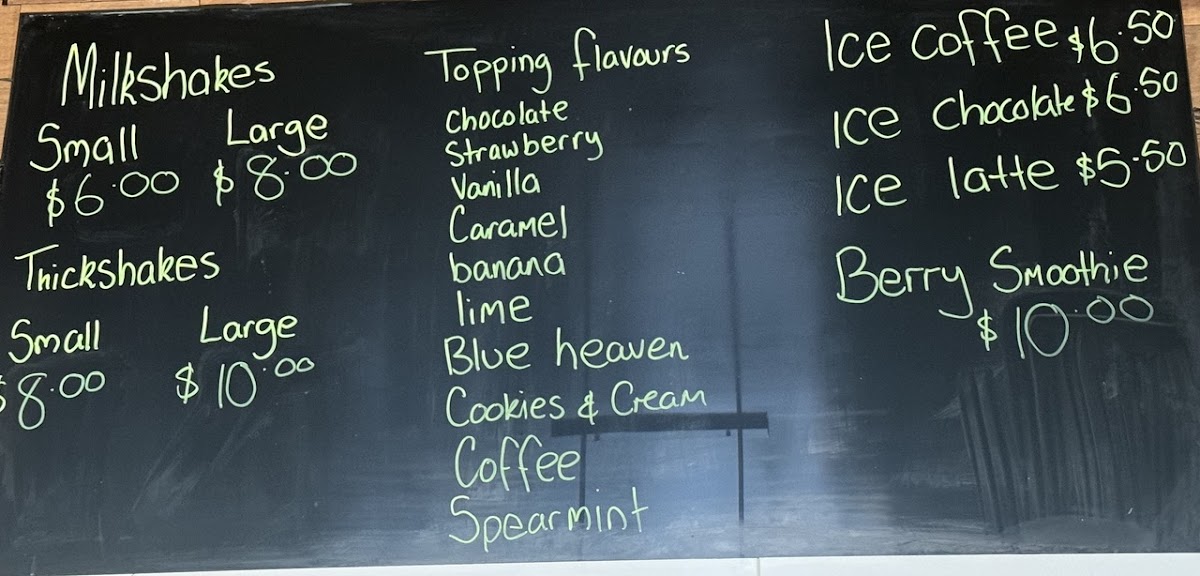 Milkshakes
Small Large
$6.00 $8.00
Thickshakes
Small Large
$8.00 $10.00
Topping flavours
Chocolate
Strawberry
Vanilla
Caramel
banana
lime
Blue heaven
Cookies & Cream
Coffee
Spearmint
Ice coffee $6.50
ICE chocolate $6.50
ICE latte $5.50
Berry Smoothie
$10.00